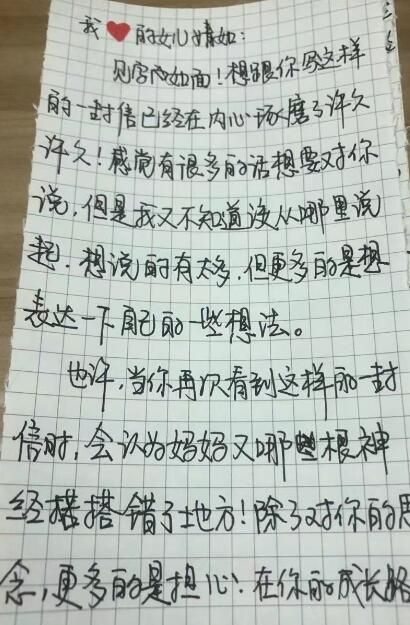 我❤的女儿婧如：
见字而如面！想跟你写这样
的一封信已经在内心琢磨了许久
许久！感觉有很多的话想要对你
说，但是我又不知道该从哪里说
起．想说的有太多，但更多的是想
表达一下自己的一些想法。
也许，当你再次看到这样的一封
信时，会认为妈妈又哪些根神
经搭搭错了地方！除了对你的思
念，更多的是担心！在你的成长路